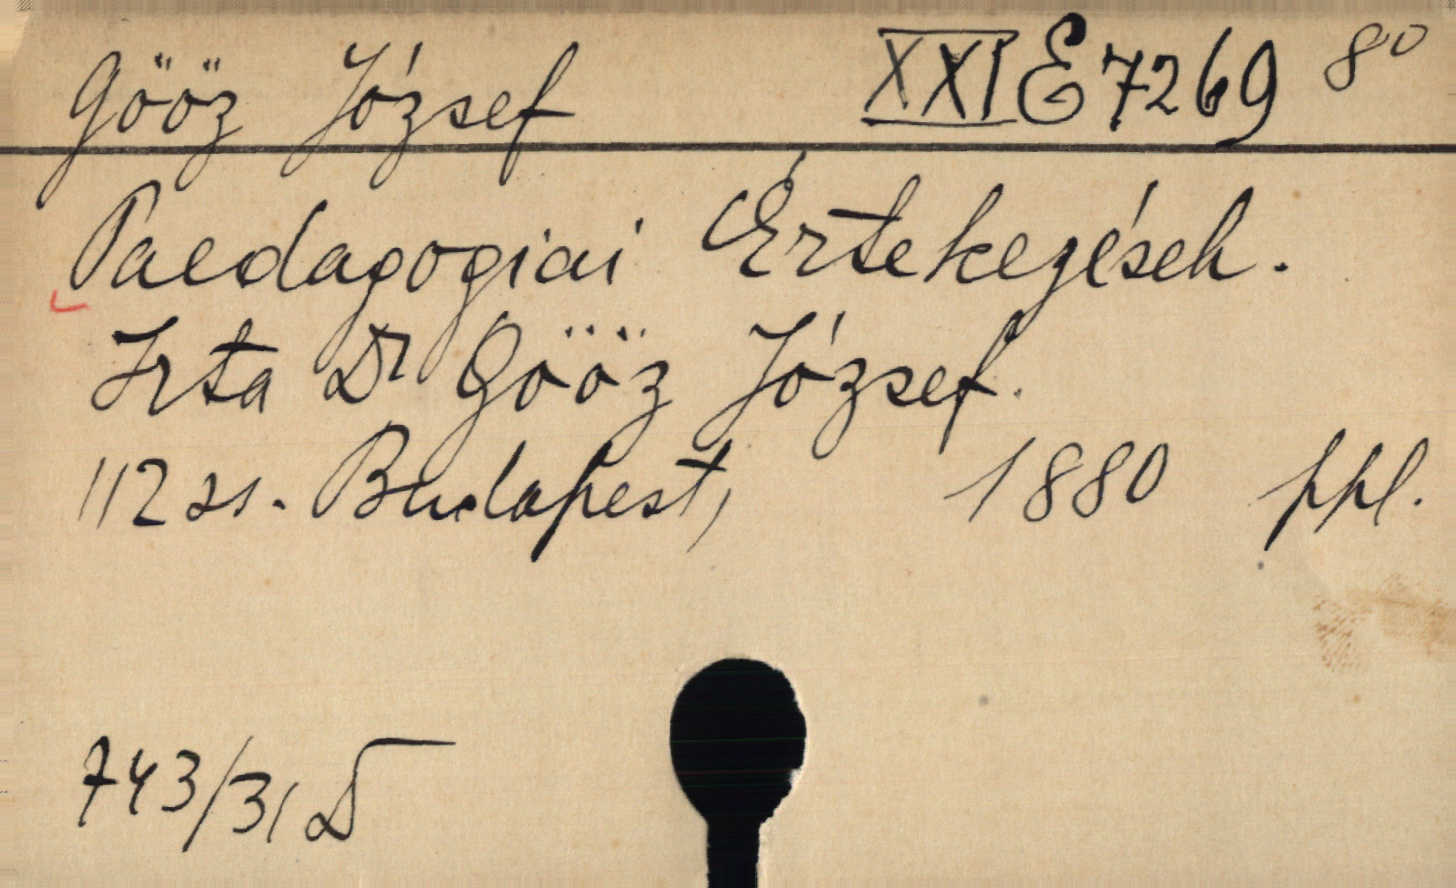 Gööz József XXI E 7269 8°
Paedagogiai Értekezések.
Irta Dr Gööz József.
112 l. Budapest, 1880 ppl.
743/31 D